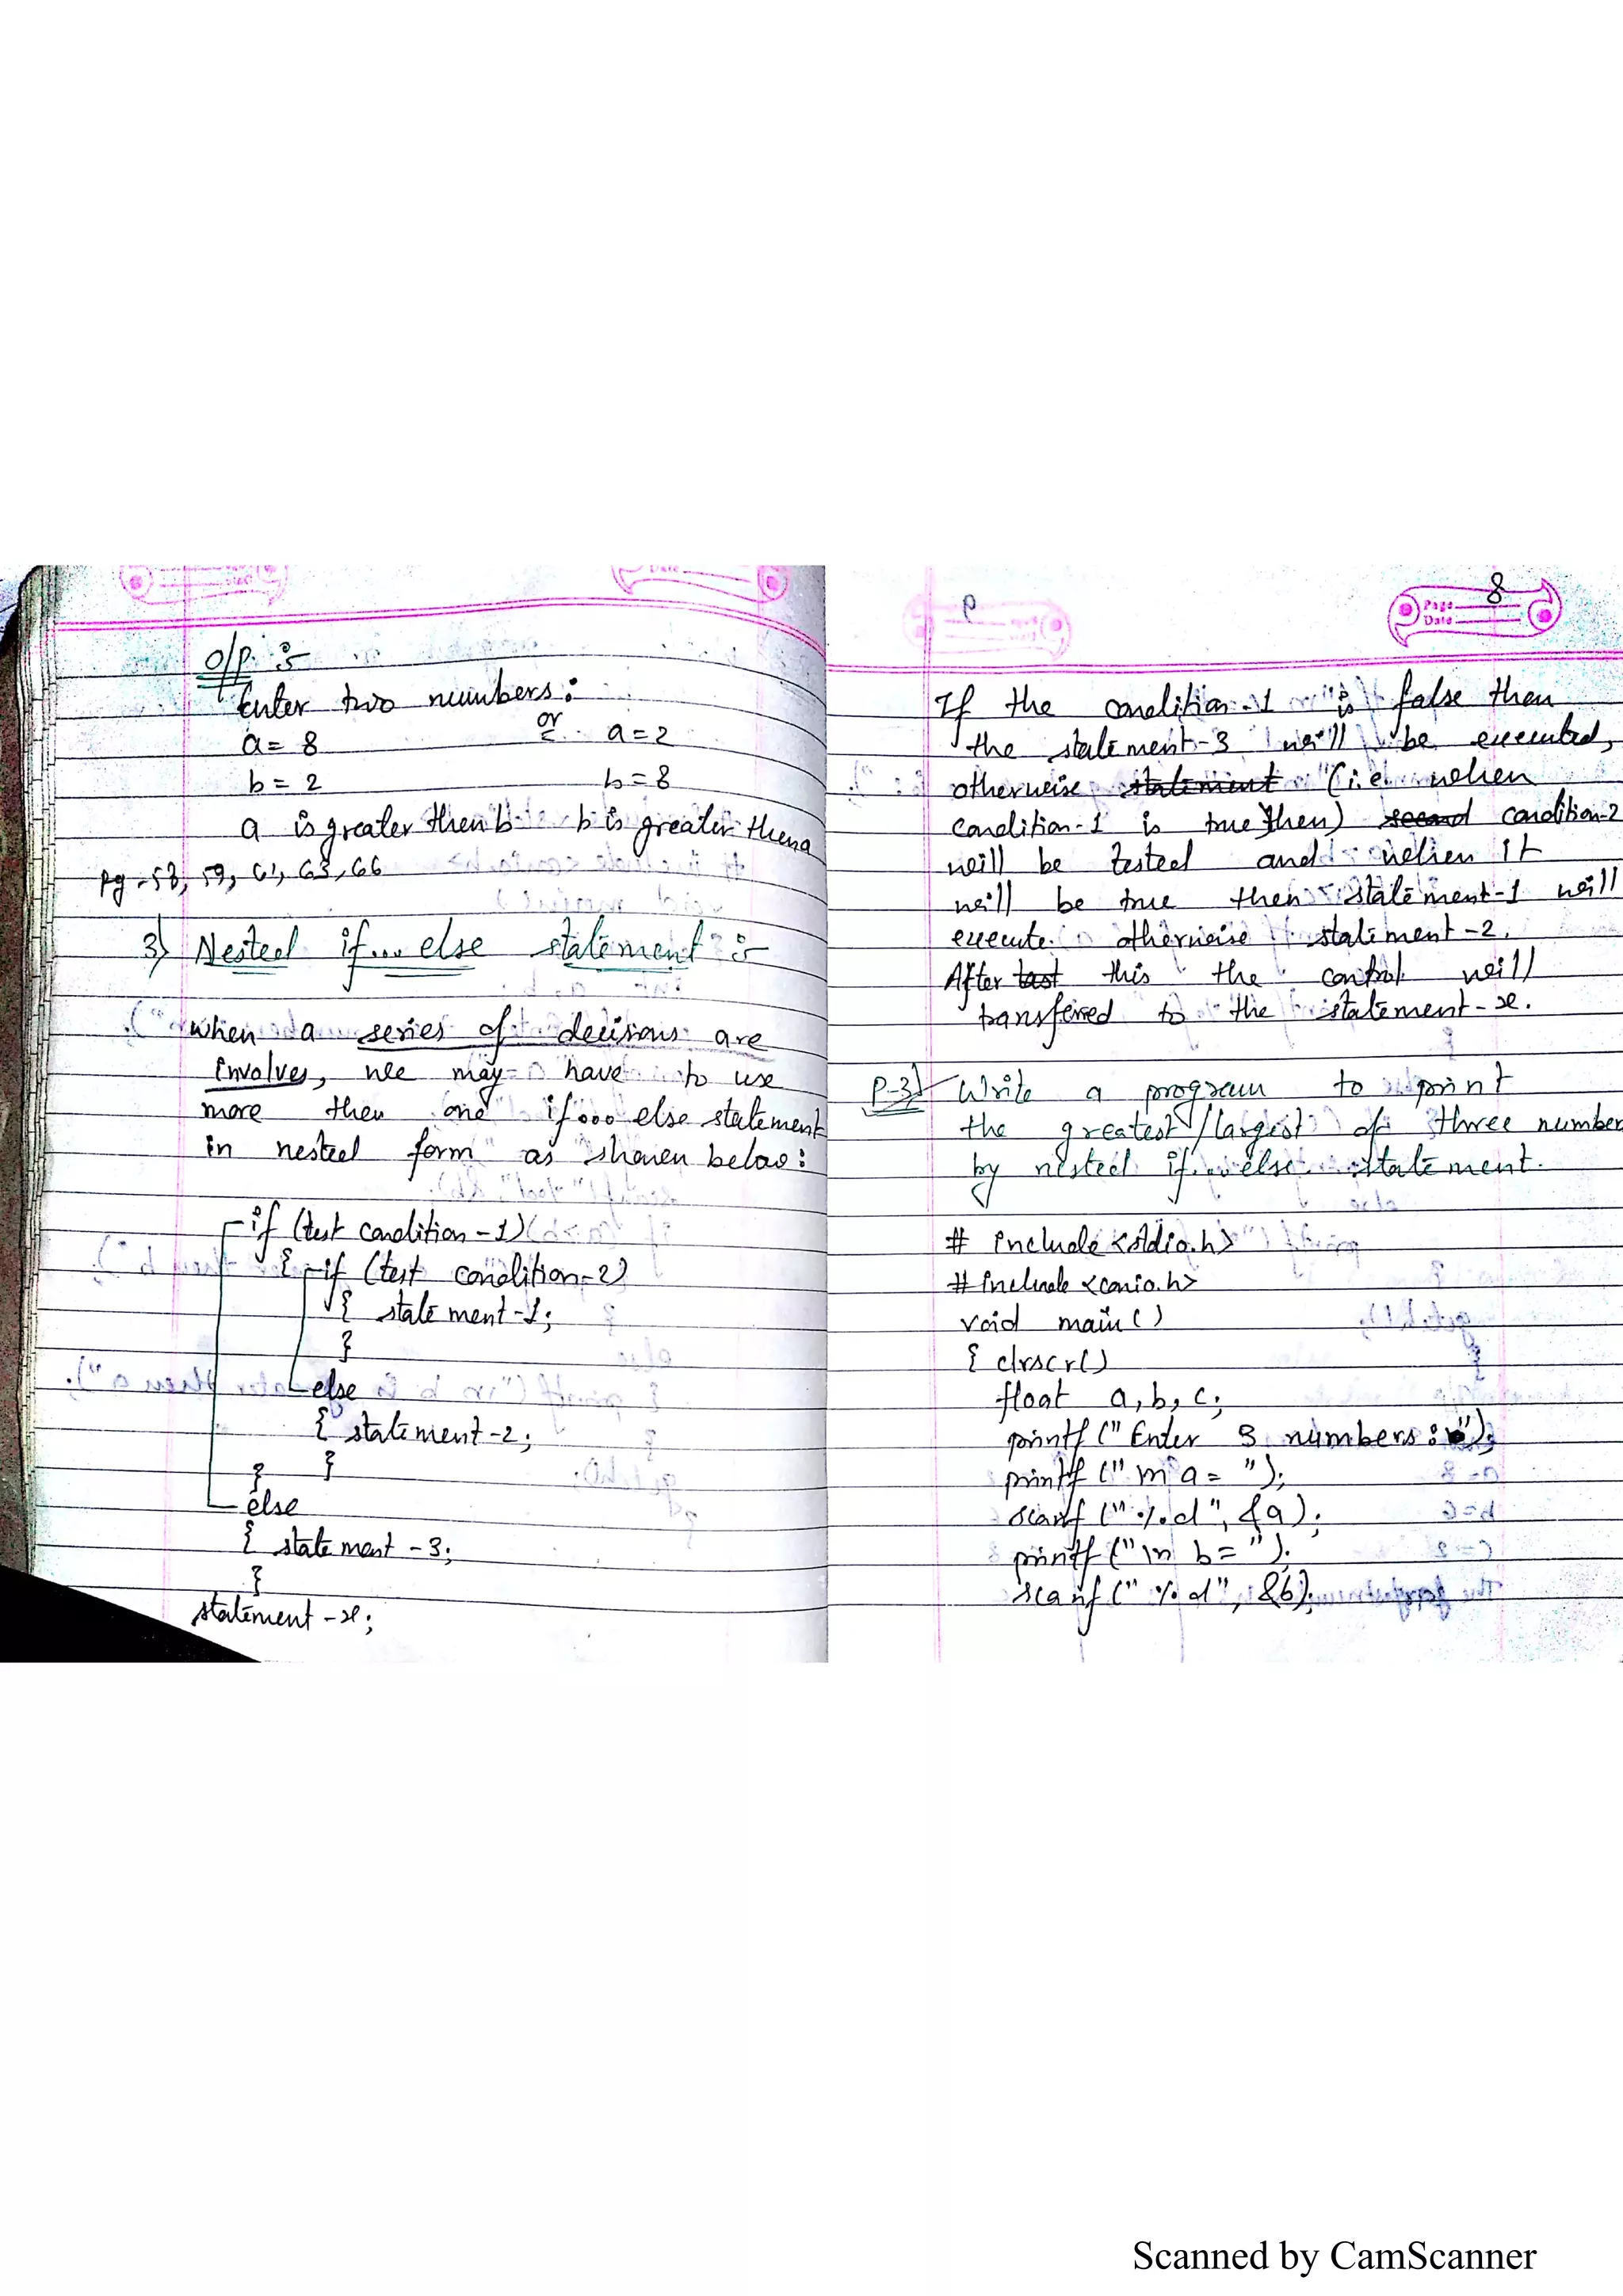 O/P :-
Enter two numbers:
a = 8 or a = 2
b = 2 b = 8
a is greater then b b is greater then a
Pg - 58, 59, 61, 63, 66
3) Nested if... else statement :-
When a series of decisions are
involves, we may have to use
more then one if... else statement
in nested form as shown below:
if (test condition - 1)
{ if (test condition - 2)
{ statement - 1;
}
else
{ statement - 2;
} }
else
{ statement - 3;
}
statement - x;
Page 8
Date
P
If the condition - 1 is false then
the statement - 3 will be executed,
otherwise statement (i.e. when
condition - 1 is true then) second condition-2
will be tested and when it
will be true then statement - 1 will
execute otherwise statement - 2.
After test this the control will
transfered to the statement - x.
P-3) Write a program to print
the greatest / largest of three number
by nested if... else statement.
# include <stdio.h>
# include <conio.h>
void main ( )
{ clrscr()
float a, b, c;
printf (" Enter 3 numbers : ");
printf (" \n a = ");
scanf (" %d ", &a);
printf (" \n b = ");
scanf (" %d ", &b);
Scanned by CamScanner